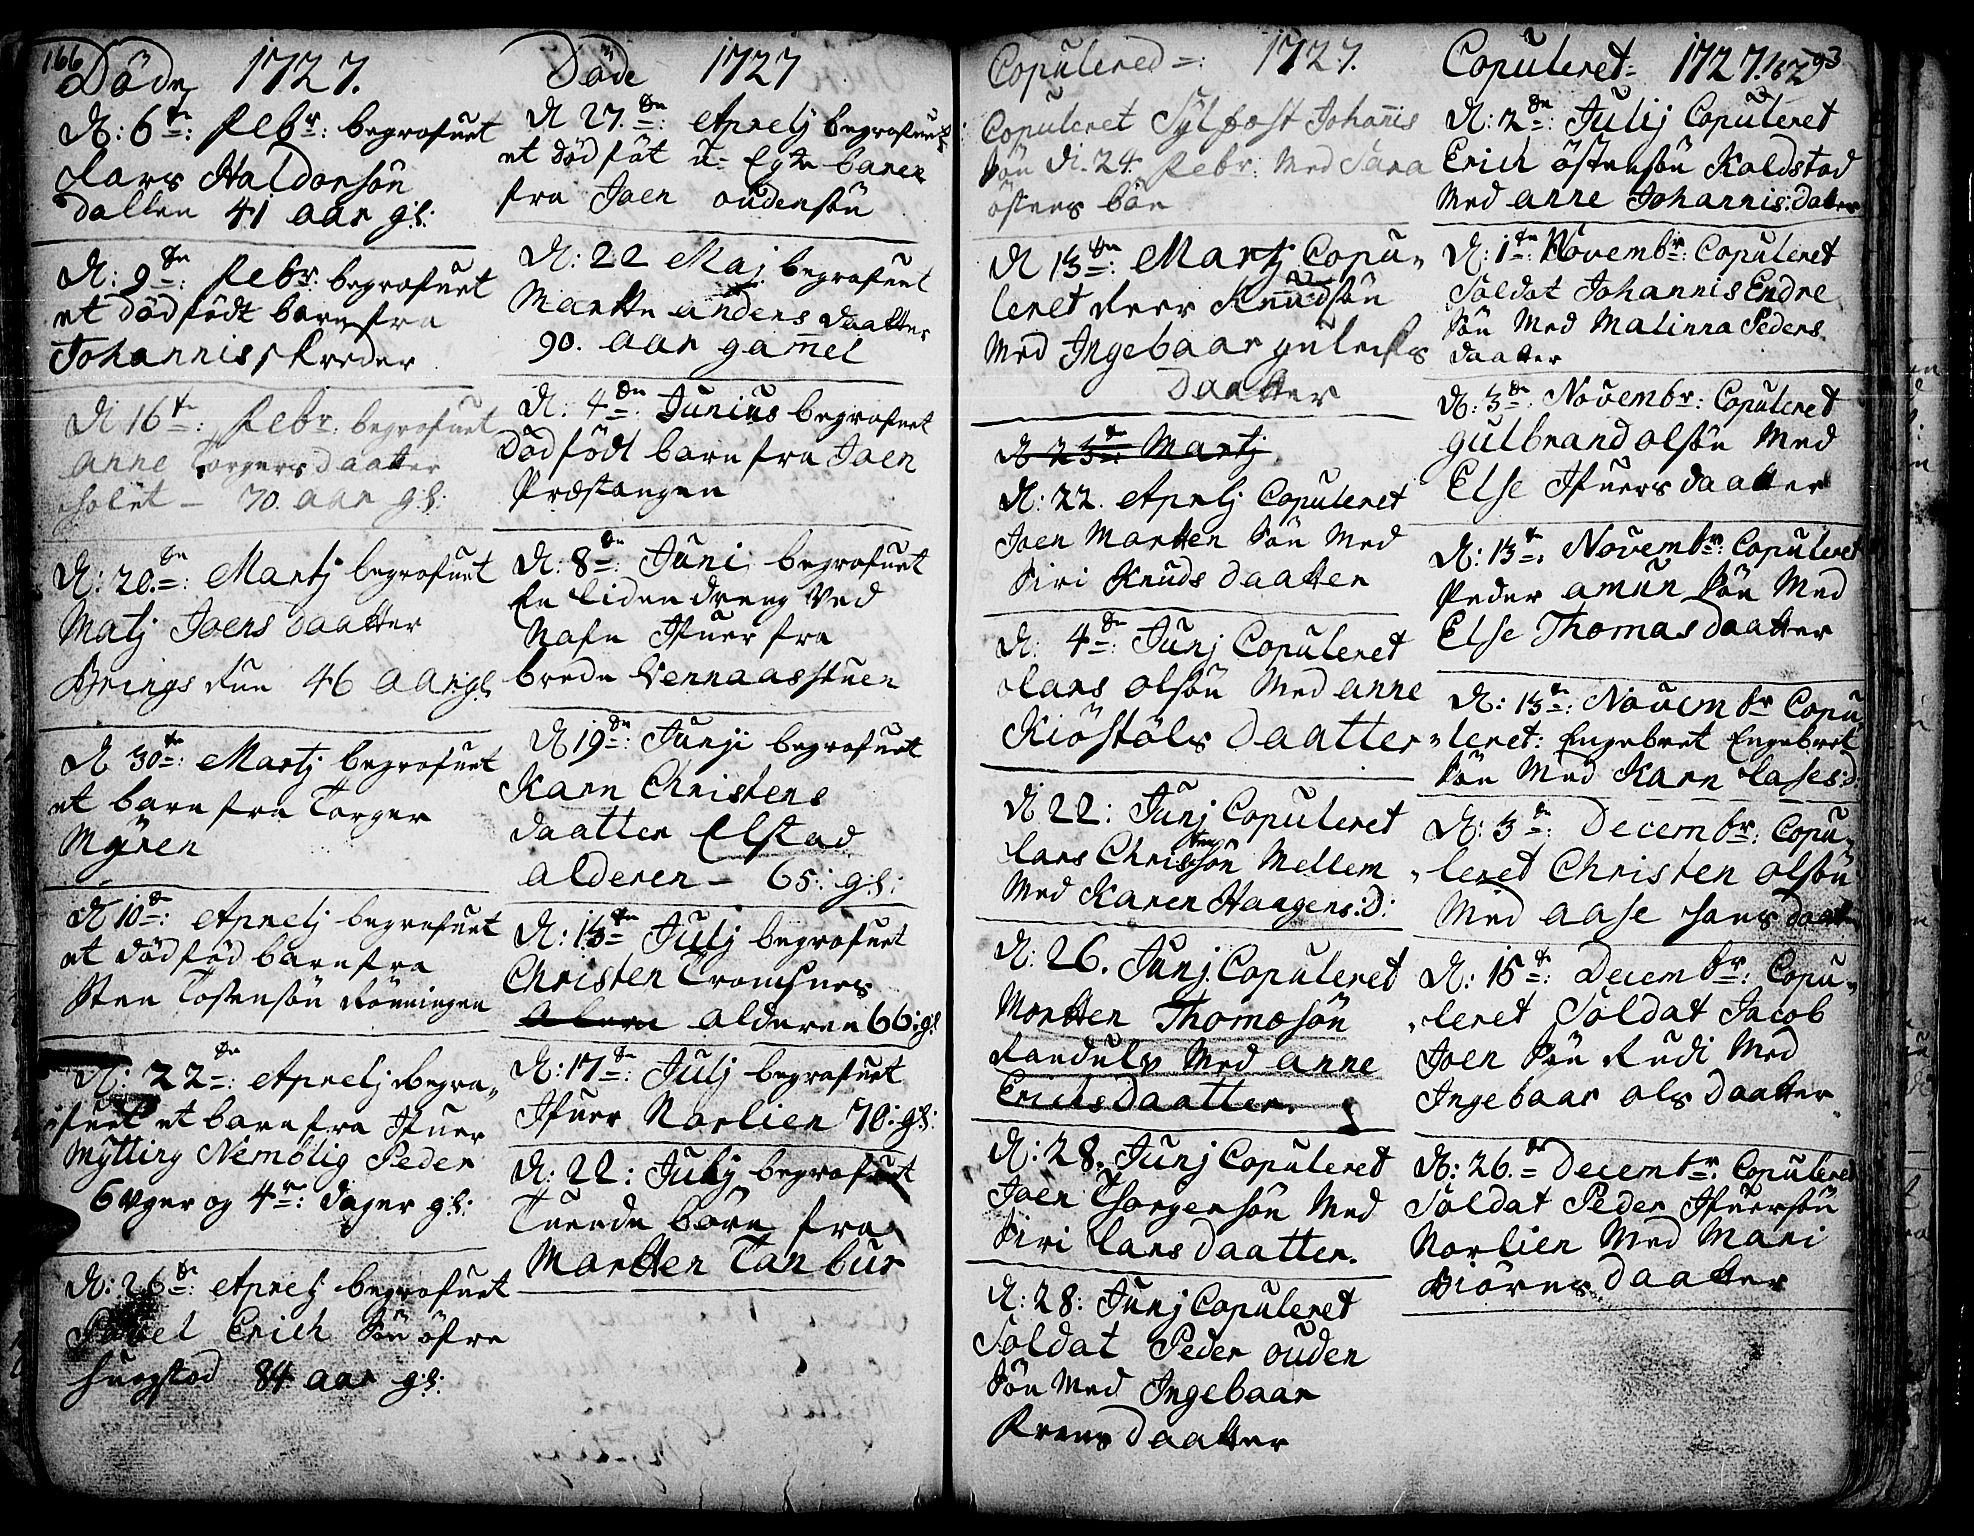 166
Döde 1727.
D: 6te: Febr: begrafuet
Lars Haldorsön
Dallen 41 aar gl:
D: 9de: Febr: begrafuet
et död födt barn fra
Johannis skreder
D 16te: Febr: begrafuet
anne Torgersdaatter
Solet - 70. aar gl:
D: 20de: Martj begrafuet
Matj Joens daatter
Brings Rue 46 aar gl
D 30te: Martj begrafuet
et barn fra Torger
Myren
D 10de: Aprelj begrafuet
et död föd barn fra
Sten Tostensön Rönningen
D: 22de: Aprelj begra„
„fuet et barn fra Ifuer
Mytting Nemblig Peder
6 uger og 4r: dager gl:
D: 26de: Aprelj begrafuet
Pouel Erich Sön öfre
84 aar gl:
Döde 1727
D 27de: Aprelj begrafuet
et död föt u= Egte barn
fra Joen oudensön
D: 22 Maj begrafuet
Martte anders daatter
90. aar gamel
D: 4de: Junius begrafuet
död födt barn fra Joen
Præstangen
D: 8de: Juni begrafuet
En liden dreng Ved
Nafn Ifuer fra
brede Vennaasstuen
D 19de: Junji begrafuet
Karn Christens
daatter Elstad
alderen - 65: gl:
D: 13te Julj begrafuet
Christen Tromsnes
alderen 66: gl
D: 17de: Julj begrafuet
Ifuer Norlien 70: gl:
D: 22: Julj begrafuet
Tuende börn fra
Martten Tanbur
Copulered =: 1727.
Copuleret Sylfæst Johanis
Sön D. 24. Febr: Med Sara
östens
D 13de: Martj Copu„
leret Knudsön
Med Ingebaar
Daatter
D 23d: Martj
D: 22. Aprelj Copuleret
Joen Martten Sön Med
Siri Knuds daatter
D: 4de: Junj Copuleret
Lars olsön Med anne
Kiöstöls Daatter
D 22: Junj Copuleret
Lars Christensön Mellem
Med Karen Haagens:D:
D: 26. Junj Copuleret
Mortten Thomosön
Randulv Med anne
Erichsdaatter.
D: 28. Junj Copuleret
Joen Thorgersön Med
Siri Lars daatter.
D: 28: Junj Copuleret
Soldat Peder ouden
Sön Med Ingebaar
daatter
Copuleret= 1727. 167 93
D: 2den: Julij Copuleret
Erich östensön Koldstad
Med anne Johannis: datter
D: 1te: Novembr: Copuleret
Soldat Johannis Endre
Sön Med Malinna Peders.
daatter
D: 3de: Novembr: Copuleret
gulbrand olsön Med
Else Ifuers daatter
D: 13te: Novembr: Copuleret
Peder amun Sön Med
Else Thomas daatter
D: 13te: Novembr Copu„
„leret: Engebret Engebret
Sön Med Karn Lases:d:
D: 3de: Decembr: Copu„
„leret Christen olsön
Med aase Hans daatter
D: 15te: Decembr: Copu„
„leret Soldat Jacob
Joen Sön Rudi Med
Ingebaar ols Daatter
D: 26.de Decembr: Copuleret
Soldat Peder Ifuersön
Norlien Med Mari
Biörnsdaatter